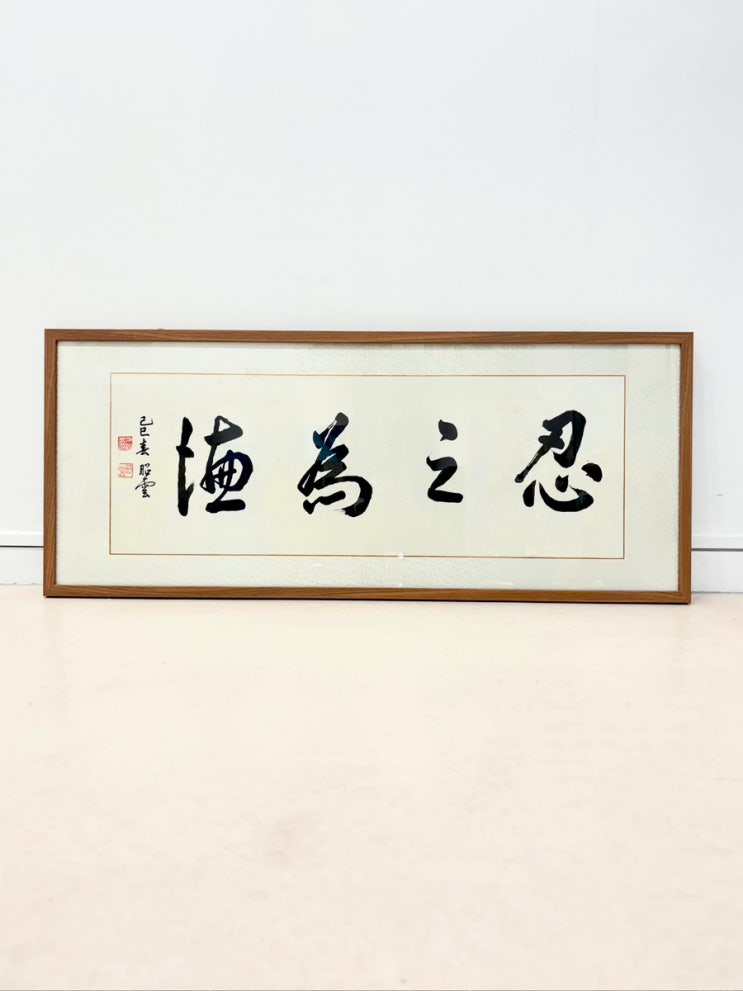 忍之為德
己巳春 昭雲